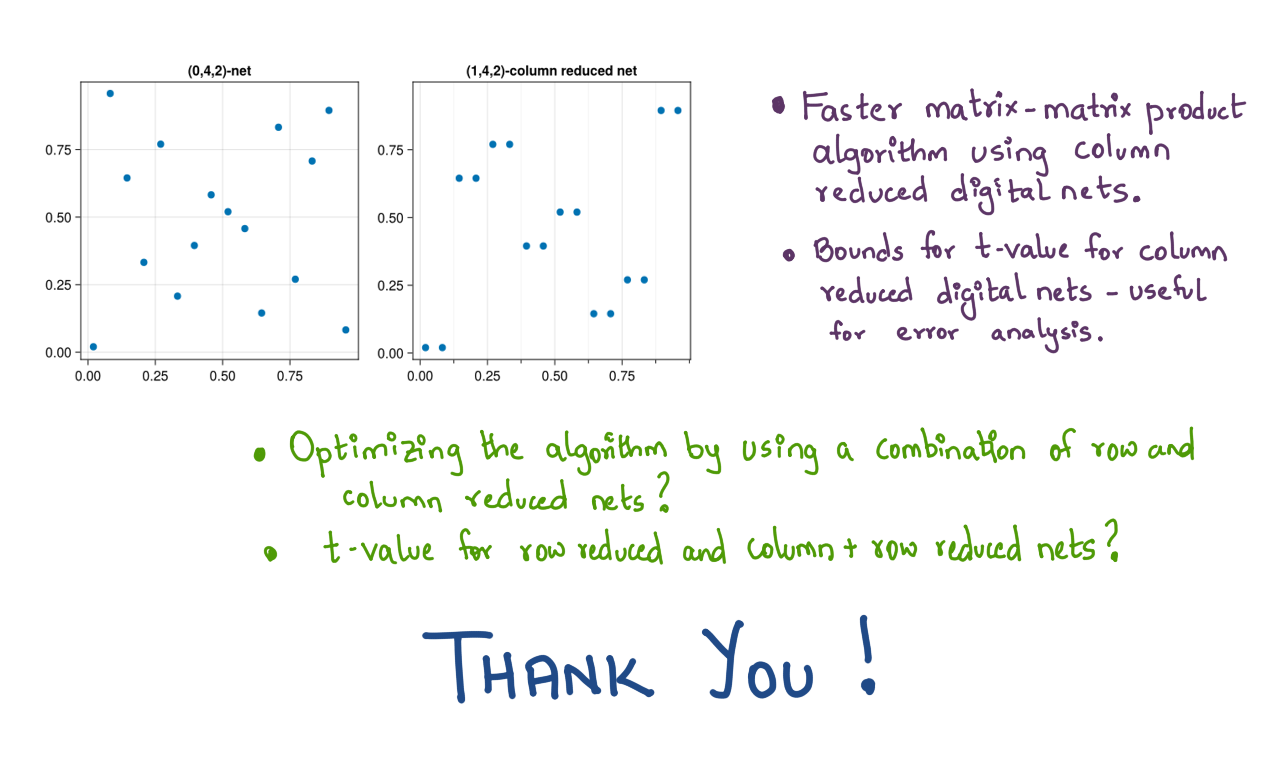 (0,4,2)-net
0.75
0.50
0.25
0.00
0.00 0.25 0.50 0.75
(1,4,2)-column reduced net
0.75
0.50
0.25
0.00
0.00 0.25 0.50 0.75
• Faster matrix-matrix product
algorithm using column
reduced digital nets.
• Bounds for t-value for column
reduced digital nets - useful
for error analysis.
• Optimizing the algorithm by using a combination of row and
column reduced nets?
• t-value for row reduced and column + row reduced nets?
THANK YOU!